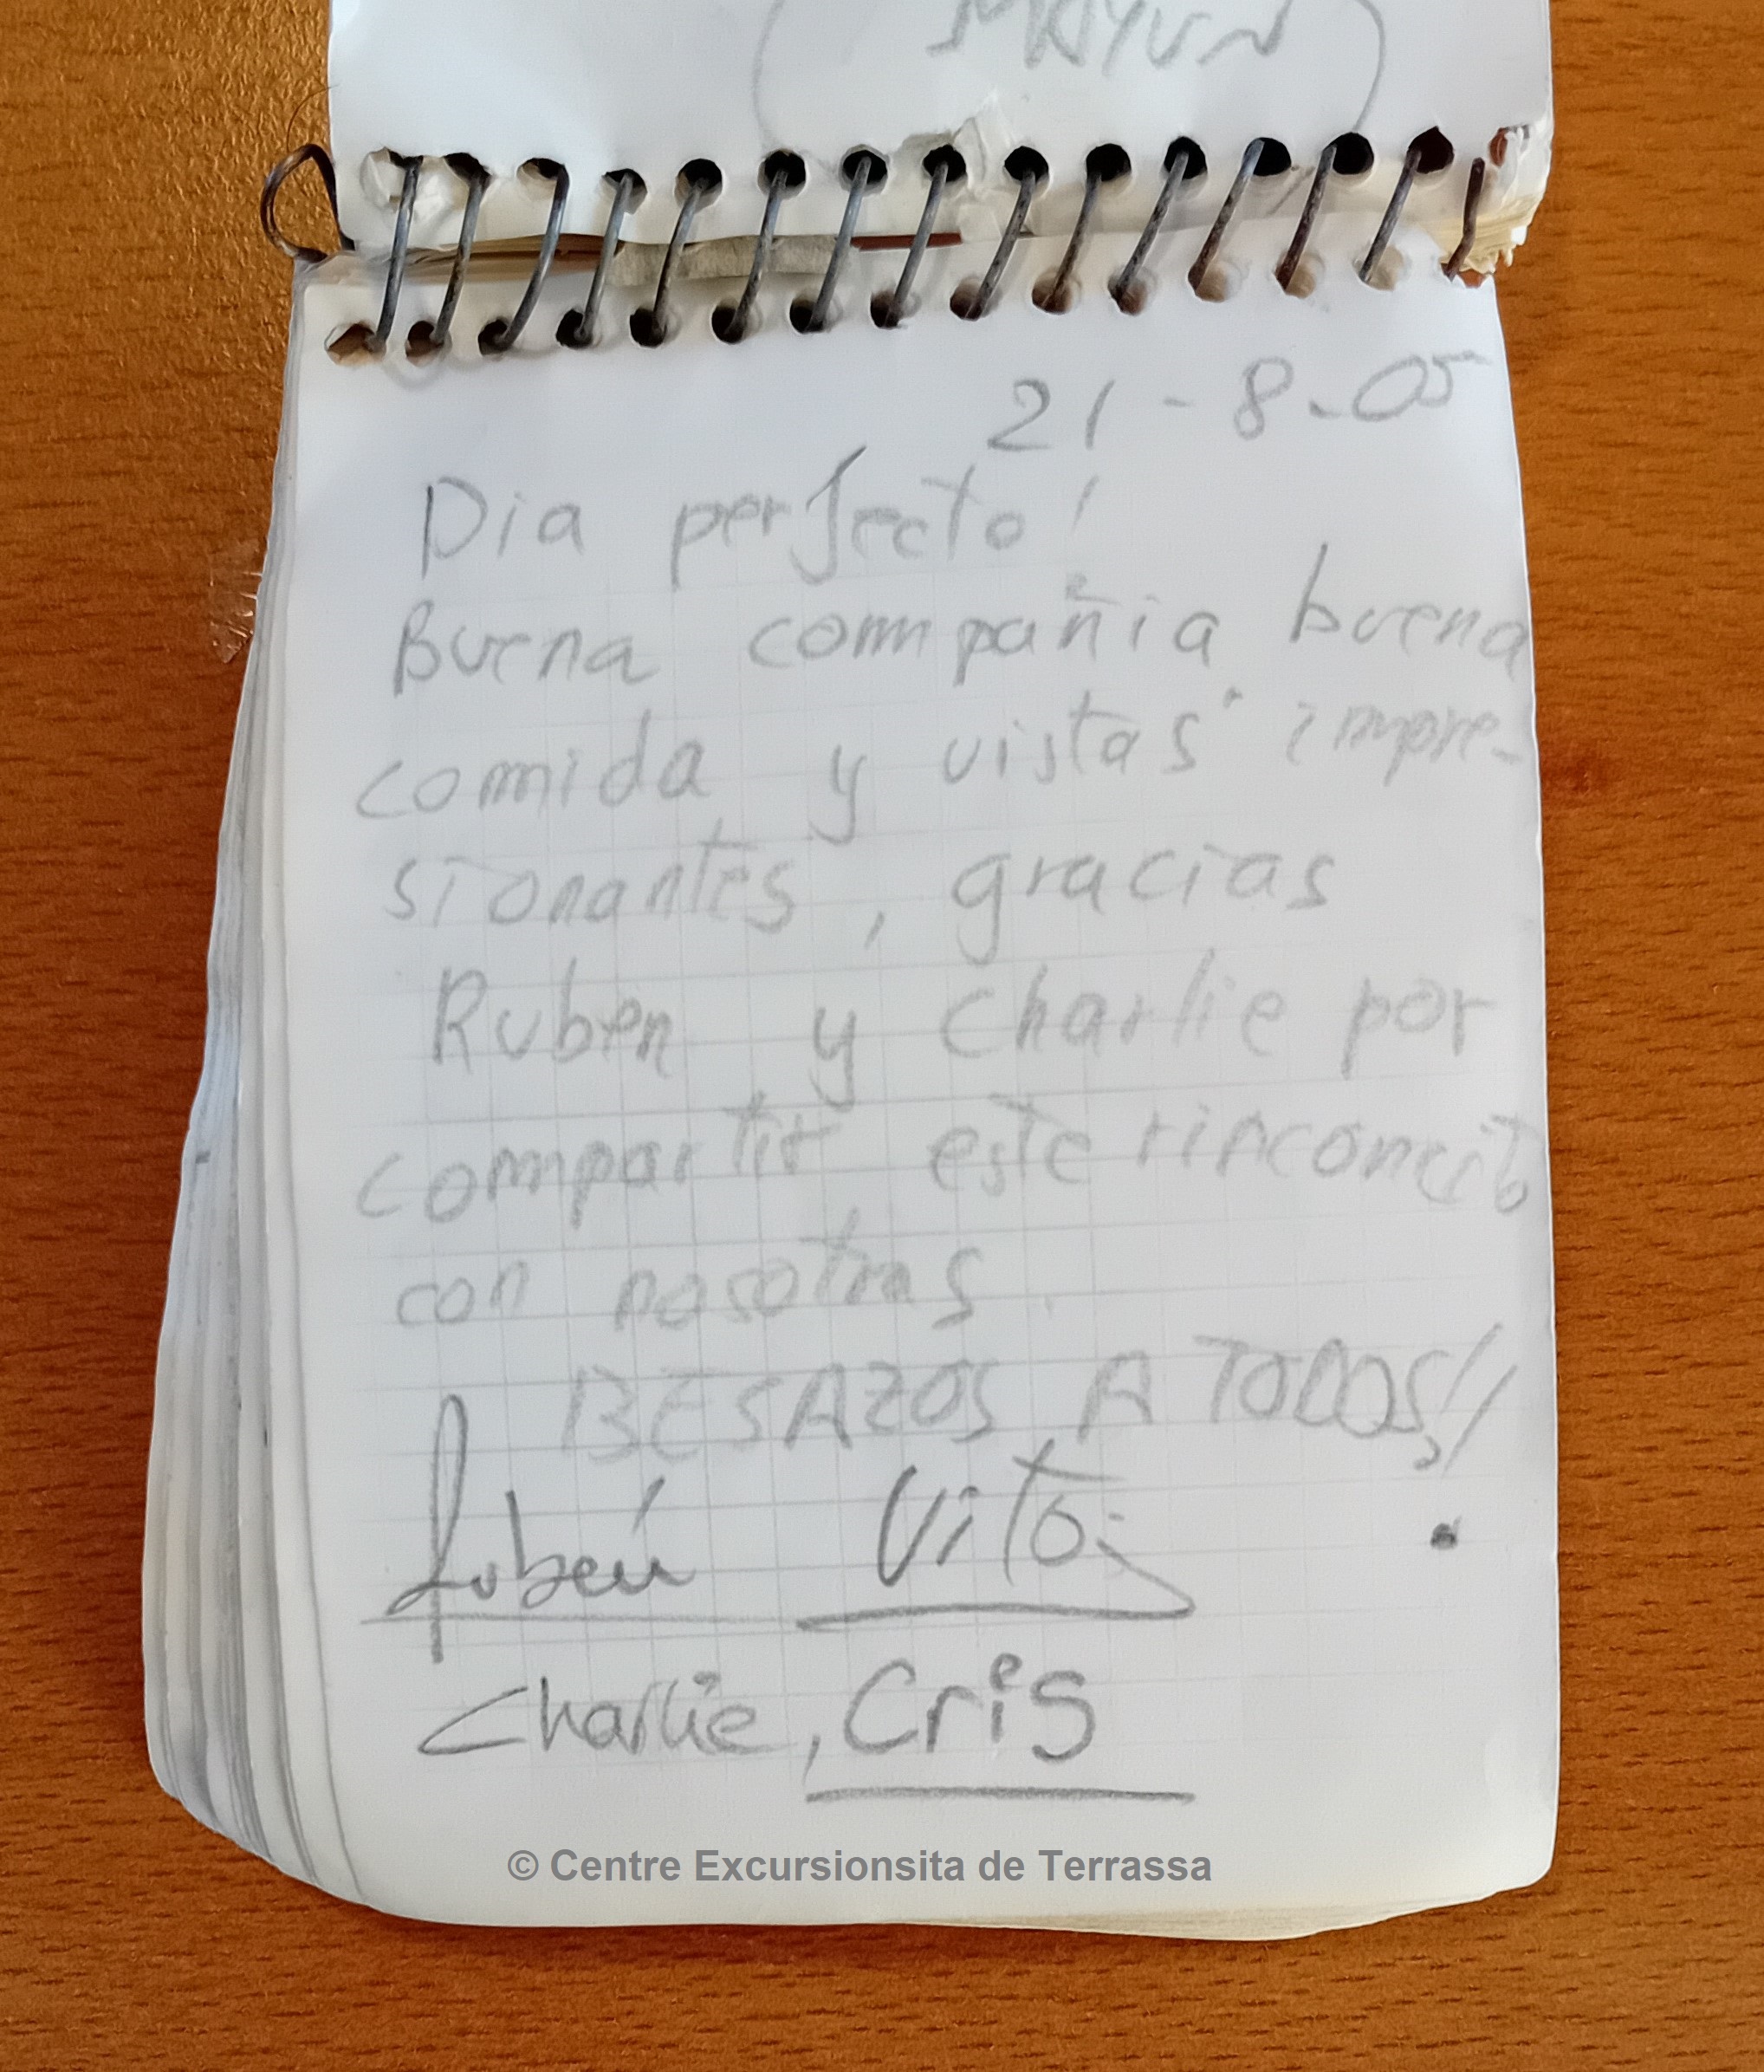 21-8-05
Dia perfecto!
Buena compañia buena
comida y vistas impre-
sionantes, gracias
Ruben y Charlie por
compartir este rinconcito
con nosotras.
BESAZOS A TODOS!!
Rubén Vito
Charlie, Cris
© Centre Excursionsita de Terrassa